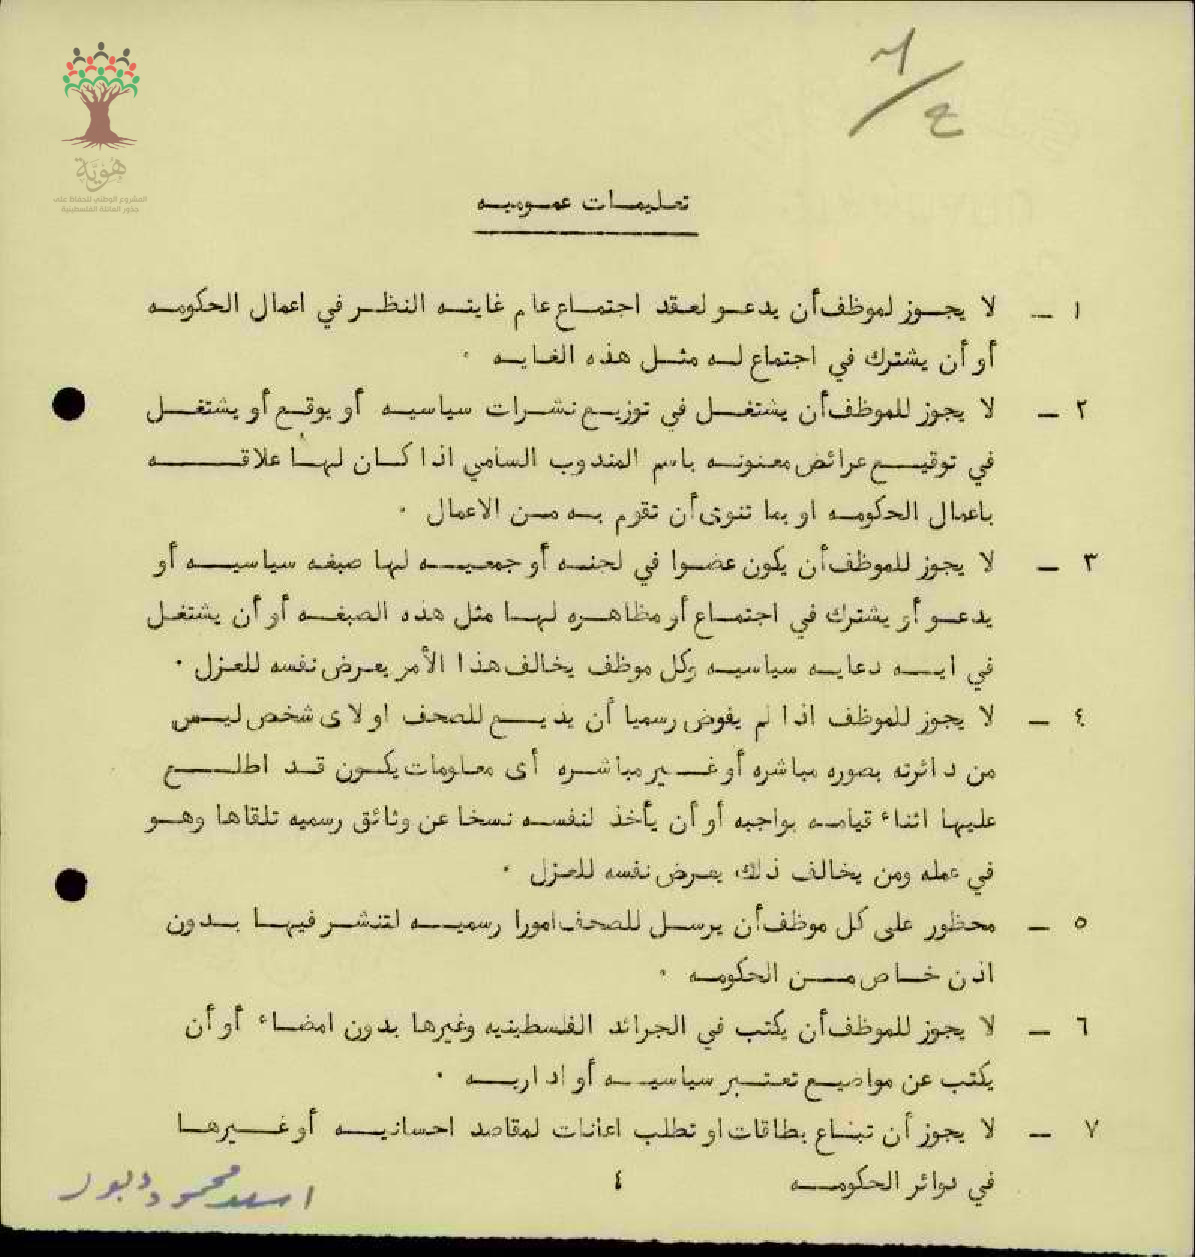 هُويَّة
المشروع الوطني للحفاظ على
جذور العائلة الفلسطينية
تعليمات عموميه
١ – لا يجوز لموظف أن يدعو لعقد اجتماع عام غايته النظر في اعمال الحكومه
أو أن يشترك في اجتماع له مثل هذه الغايه ٠
٢ – لا يجوز للموظف أن يشتغل في توزيع نشرات سياسيه أو يوقع أو يشتغل
في توقيع عرائض معنونه باسم المندوب السامي اذا كان لها علاقه
باعمال الحكومه او بما تنوى أن تقوم به من الاعمال ٠
٣ – لا يجوز للموظف أن يكون عضوا في لجنه أو جمعيه لها صبغه سياسيه أو
يدعو أو يشترك في اجتماع أو مظاهره لها مثل هذه الصبغه أو أن يشتغل
في ايه دعايه سياسيه وكل موظف يخالف هذا الأمر يعرض نفسه للعزل ٠
٤ – لا يجوز للموظف اذا لم يفوض رسميا أن يذيع للصحف او لاى شخص ليس
من دائرته بصوره مباشره أو غير مباشره أى معلومات يكون قد اطلع
عليها اثناء قيامه بواجبه أو أن يأخذ لنفسه نسخا عن وثائق رسميه تلقاها وهو
في عمله ومن يخالف ذلك يعرض نفسه للعزل ٠
٥ – محظور على كل موظف أن يرسل للصحف امورا رسميه لتنشر فيها بدون
اذن خاص من الحكومه ٠
٦ – لا يجوز للموظف أن يكتب في الجرائد الفلسطينيه وغيرها بدون امضاء أو أن
يكتب عن مواضيع تعتبر سياسيه أو اداريه ٠
٧ – لا يجوز أن تبتاع بطاقات او تطلب اعانات لمقاصد احسانيه أو غيرها
في دوائر الحكومه
٤
اسعد محمود دبور